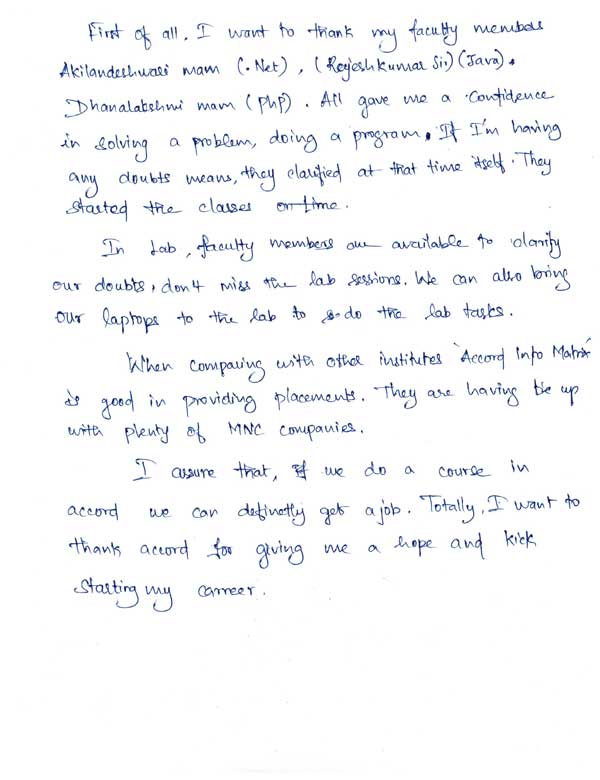 First of all, I want to thank my faculty members
Akilandeshwari mam (.Net), (Rajeshkumar Sir) (Java),
Dhanalakshmi mam (PhP). All gave me a confidence
in solving a problem, doing a program. If I'm having
any doubts means, they clarified at that time itself. They
started the classes on time.
In Lab, faculty members are available to clarify
our doubts, don't miss the lab sessions. We can also bring
our laptops to the lab to do the lab tasks.
When comparing with other institutes 'Accord Info Matrix'
is good in providing placements. They are having tie up
with plenty of MNC companies.
I assure that, if we do a course in
accord we can definetly get a job. Totally, I want to
thank accord for giving me a hope and kick
starting my carreer.